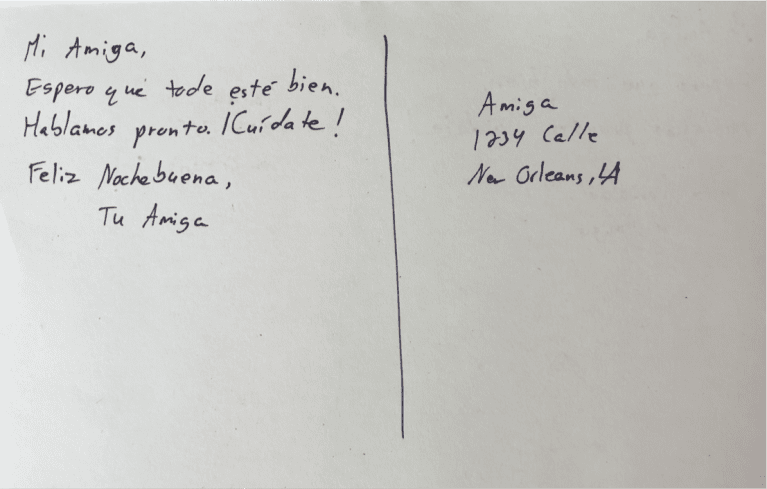 Mi Amiga,
Espero qué tode esté bien.
Hablamos pronto. ¡Cuídate!
Feliz Nochebuena,
Tu Amiga
Amiga
1234 Calle
New Orleans, LA